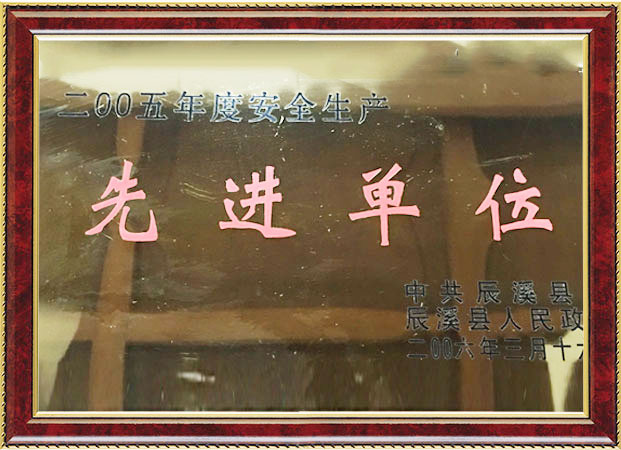 二00五年度安全生产
先进单位
中共辰溪县
辰溪县人民政
二00六年三月十